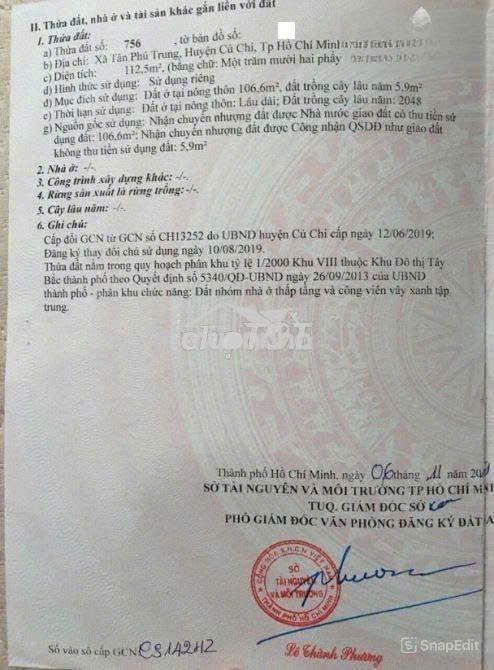 II. Thửa đất, nhà ở và tài sản khác gắn liền với đất
1. Thửa đất:
a) Thửa đất số: 756 , tờ bản đồ số:
b) Địa chỉ: Xã Tân Phú Trung, Huyện Củ Chi, Tp Hồ Chí Minh
c) Diện tích: 112,5m², (bằng chữ: Một trăm mười hai phẩy
d) Hình thức sử dụng: Sử dụng riêng
đ) Mục đích sử dụng: Đất ở tại nông thôn 106,6m², đất trồng cây lâu năm 5,9m²
e) Thời hạn sử dụng: Đất ở tại nông thôn: Lâu dài; Đất trồng cây lâu năm: 2048
g) Nguồn gốc sử dụng: Nhận chuyển nhượng đất được Nhà nước giao đất có thu tiền sử
dụng đất: 106,6m²; Nhận chuyển nhượng đất được Công nhận QSDĐ như giao đất
không thu tiền sử dụng đất: 5,9m²
2. Nhà ở: -/-.
3. Công trình xây dựng khác: -/-.
4. Rừng sản xuất là rừng trồng: -/-.
5. Cây lâu năm: -/-.
6. Ghi chú:
Cấp đổi GCN từ GCN số CH13252 do UBND huyện Củ Chi cấp ngày 12/06/2019;
Đăng ký thay đổi chủ sử dụng ngày 10/08/2019.
Thửa đất nằm trong quy hoạch phân khu tỷ lệ 1/2000 Khu VIII thuộc Khu Đô thị Tây
Bắc thành phố theo Quyết định số 5340/QĐ-UBND ngày 26/09/2013 của UBND
thành phố - phân khu chức năng: Đất nhóm nhà ở thấp tầng và công viên cây xanh tập
trung.
chợTỐT
Thành phố Hồ Chí Minh, ngày 06 tháng 11 năm
SỞ TÀI NGUYÊN VÀ MÔI TRƯỜNG TP HỒ CHÍ MINH
TUQ. GIÁM ĐỐC SỞ
PHÓ GIÁM ĐỐC VĂN PHÒNG ĐĂNG KÝ ĐẤT
CỘNG HÒA X.H.C.N VIỆT NAM
SỞ
TÀI NGUYÊN
VÀ MÔI TRƯỜNG
THÀNH PHỐ HỒ CHÍ MINH
Số vào sổ cấp GCN: CS14242
Lê Thành Phương
SnapEdit